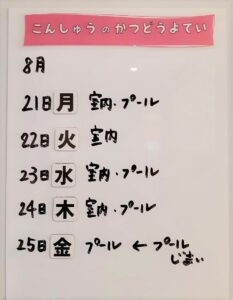 こんしゅうのかつどうよてい
8月
21日 月 室内・プール
22日 火 室内
23日 水 室内・プール
24日 木 室内・プール
25日 金 プール ← プール
じまい